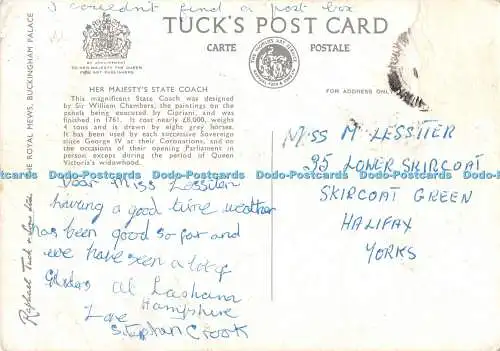 I couldn't find a post box
TUCK'S POST CARD
CARTE POSTALE
BY APPOINTMENT
TO HER MAJESTY THE QUEEN
FINE ART PUBLISHERS
FOR ADDRESS ONLY
THE ROYAL MEWS, BUCKINGHAM PALACE
Raphael Tuck & Sons Ltd.
HER MAJESTY'S STATE COACH
This magnificent State Coach was designed
by Sir William Chambers, the paintings on the
panels being executed by Cipriani, and was
finished in 1761. It cost nearly £8,000, weighs
4 tons and is drawn by eight grey horses.
It has been used by each successive Sovereign
since George IV at their Coronations, and on
the occasions of their opening Parliament in
person except during the period of Queen
Victoria's widowhood.
Dear Miss Lessiter
having a good time weather
has been good so far and
we have seen a lot of
gliders at Lasham
Hampshire
Love
Stephan Crook
MISS M LESSITER
25 LOWER SKIRCOAT
SKIRCOAT GREEN
HALIFAX
YORKS
Dodo-Postcards Dodo-Postcards Dodo-Postcards Dodo-Postcards Dodo-Postcards Dodo-Postcards